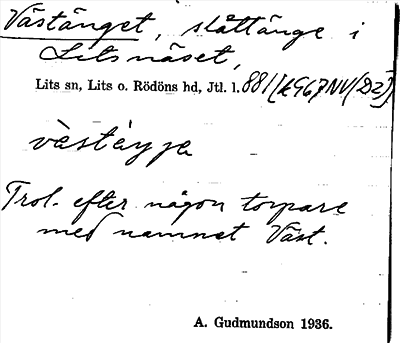 Västänget, slåttänge i
Litsnäset,
Lits sn, Lits o. Rödöns hd, Jtl. l. 881
Trol. efter någon torpare
med namnet Väst.
A. Gudmundson 1936.